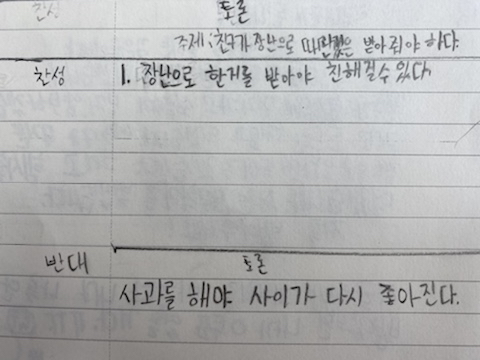 찬성
토론
주제: 친구가 장난으로 때린것은 받아 줘야 하다.
찬성 1. 장난으로 한거를 받아야 친해질수 있다
반대
토론
사과를 해야 사이가 다시 좋아진다.